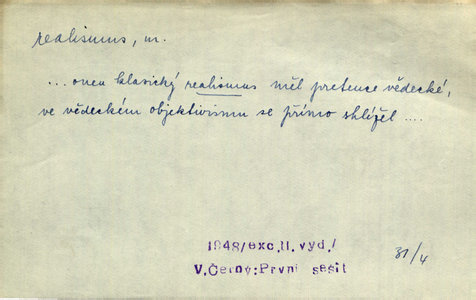 realismus, m.
... onen klasický realismus měl pretence vědecké,
ve vědeckém objektivismu se přímo shlížel ....
1948/exc.II.vyd./
V.Černý:První sešit
31/4